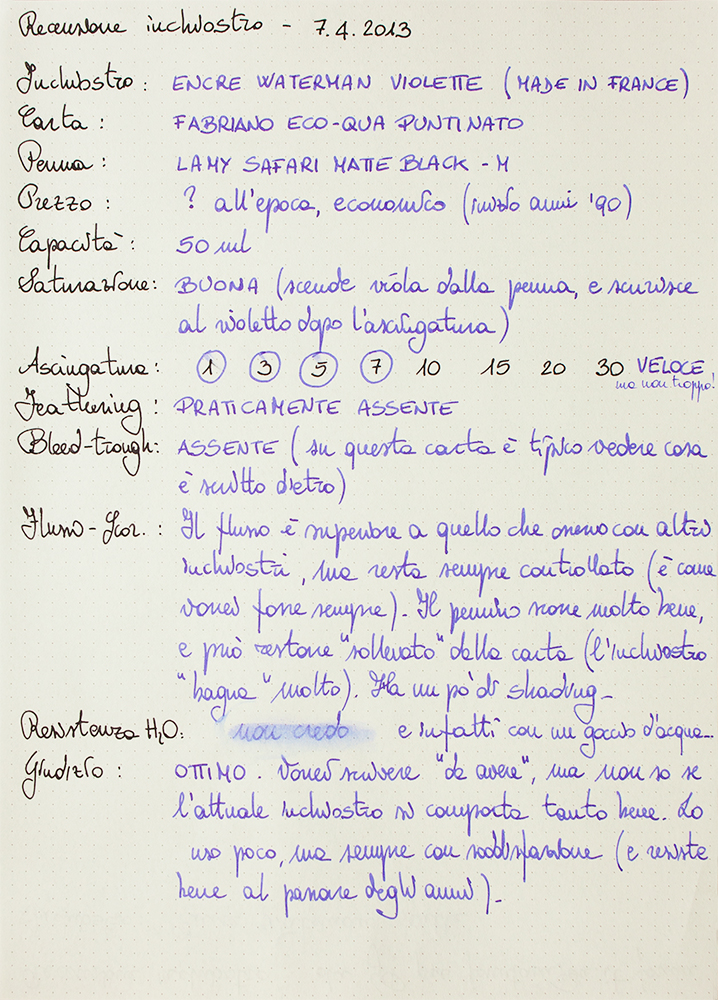 Recensione inchiostro - 7.4.2013
Inchiostro: ENCRE WATERMAN VIOLETTE (MADE IN FRANCE)
Carta: FABRIANO ECO-QUA PUNTINATO
Penna: LAMY SAFARI MATTE BLACK - M
Prezzo: ? all'epoca, economico (inizio anni '90)
Capacità: 50 ml
Saturazione: BUONA (scende viola dalla penna, e scurisce
al violetto dopo l'asciugatura)
Asciugatura: 1 3 5 7 10 15 20 30 VELOCE
ma non troppo!
Feathering: PRATICAMENTE ASSENTE
Bleed-trough: ASSENTE (su questa carta è tipico vedere cosa
è scritto dietro)
Flusso-Scor.: Il flusso è superiore a quello che osservo con altri
inchiostri, ma resta sempre controllato (è come
vorrei fosse sempre). Il pennino scorre molto bene,
e può restare "sollevato" dalla carta (l'inchiostro
"bagna" molto). Ha un pò di shading-
Resistenza H2O: non credo e infatti con un goccio d'acqua...
Giudizio: OTTIMO. Vorrei scrivere "da avere", ma non so se
l'attuale inchiostro si comporta tanto bene. Lo
uso poco, ma sempre con soddisfazione (e resiste
bene al passare degli anni).-